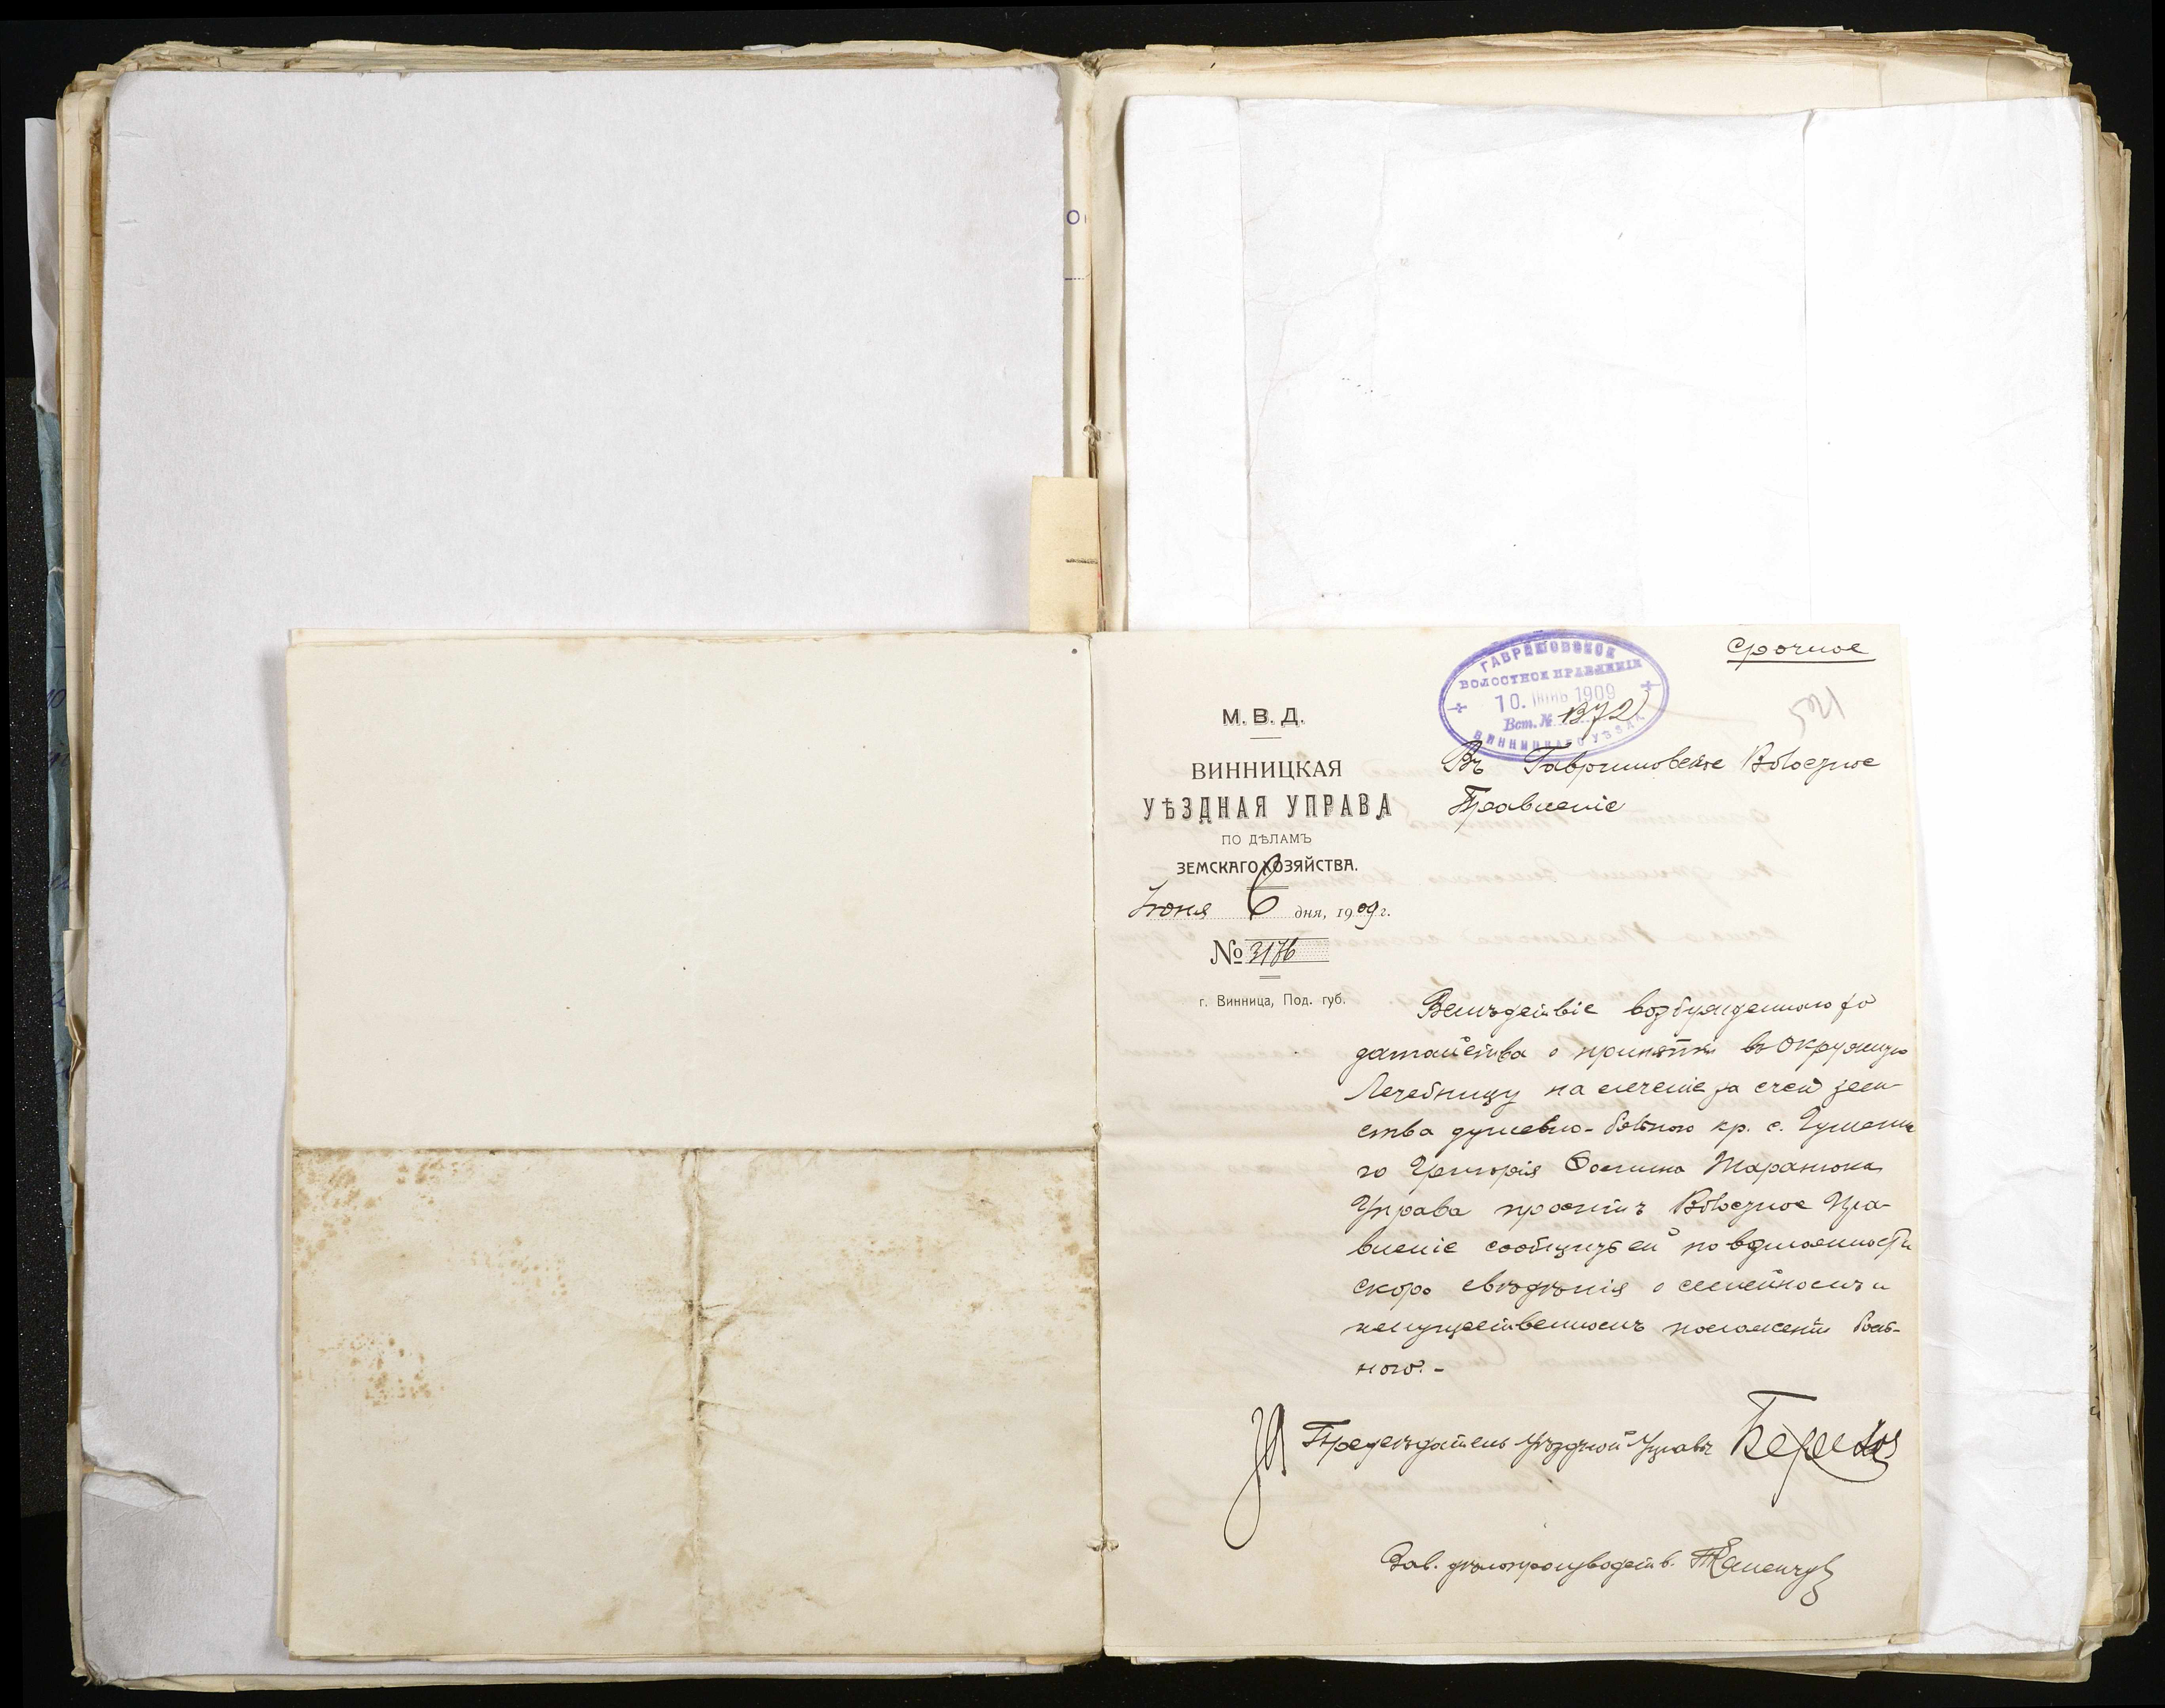 Срочное
ГАВРИШОВСКОЕ
ВОЛОСТНОЕ ПРАВЛЕНІЕ
10. ІЮНЬ 1909
Вст. № 1372
ВИННИЦКАГО УѢЗДА
М. В. Д.
ВИННИЦКАЯ
УѢЗДНАЯ УПРАВА
ПО ДѢЛАМЪ
ЗЕМСКАГО ХОЗЯЙСТВА.
Іюня 6 дня, 1909 г.
№ 3176
г. Винница, Под. губ.
Въ Гавришовское Волостное
Правленіе
Вслѣдствіе возбужденнаго хо
датайства о принятіи въ Окружную
Лечебницу на леченіе за счетъ зем-
ства душевно-больного кр. с.
го Григорія Таранюка
Управа проситъ Волостное Пра-
вленіе сообщить ей по возможности
скоро свѣдѣнія о семейномъ и
имущественномъ положеніи боль-
ного. -
За Предсѣдатель Уѣздной Управы
Зав. дѣлопроизводств.